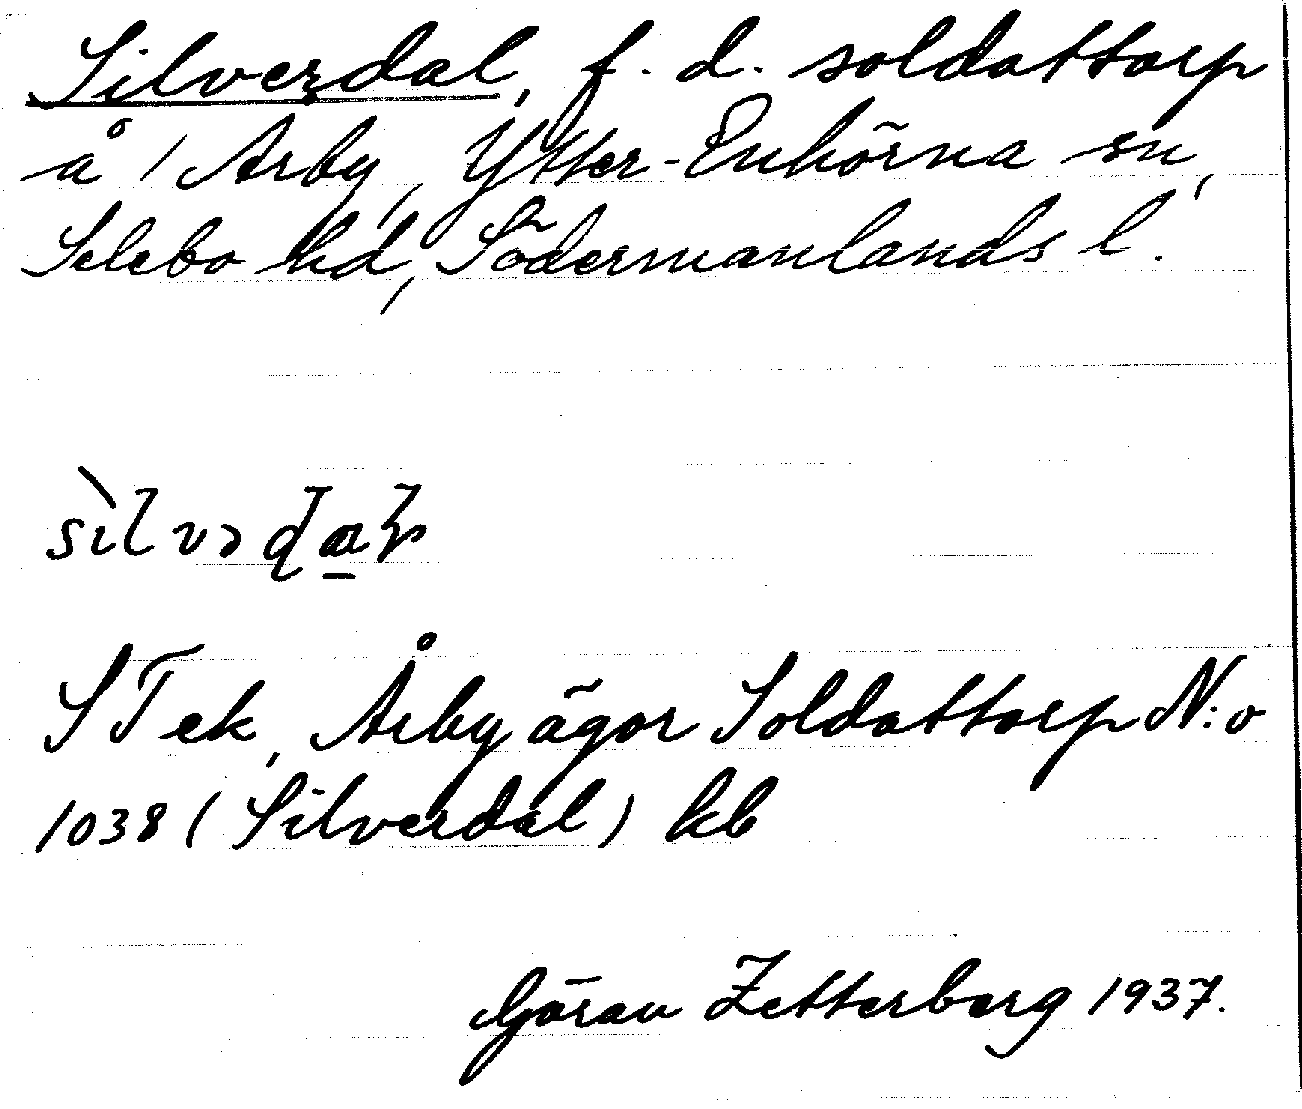 Silverdal, f. d. soldattorp
å 1 Arby, Ytter-Enhörna sn,
Selebo hd, Södermanlands l.
sìlvəɖɑ̲ɽ
STek, Årby ägor Soldattorp N:o
1038 (Silverdal) kb
Göran Zetterberg 1937.